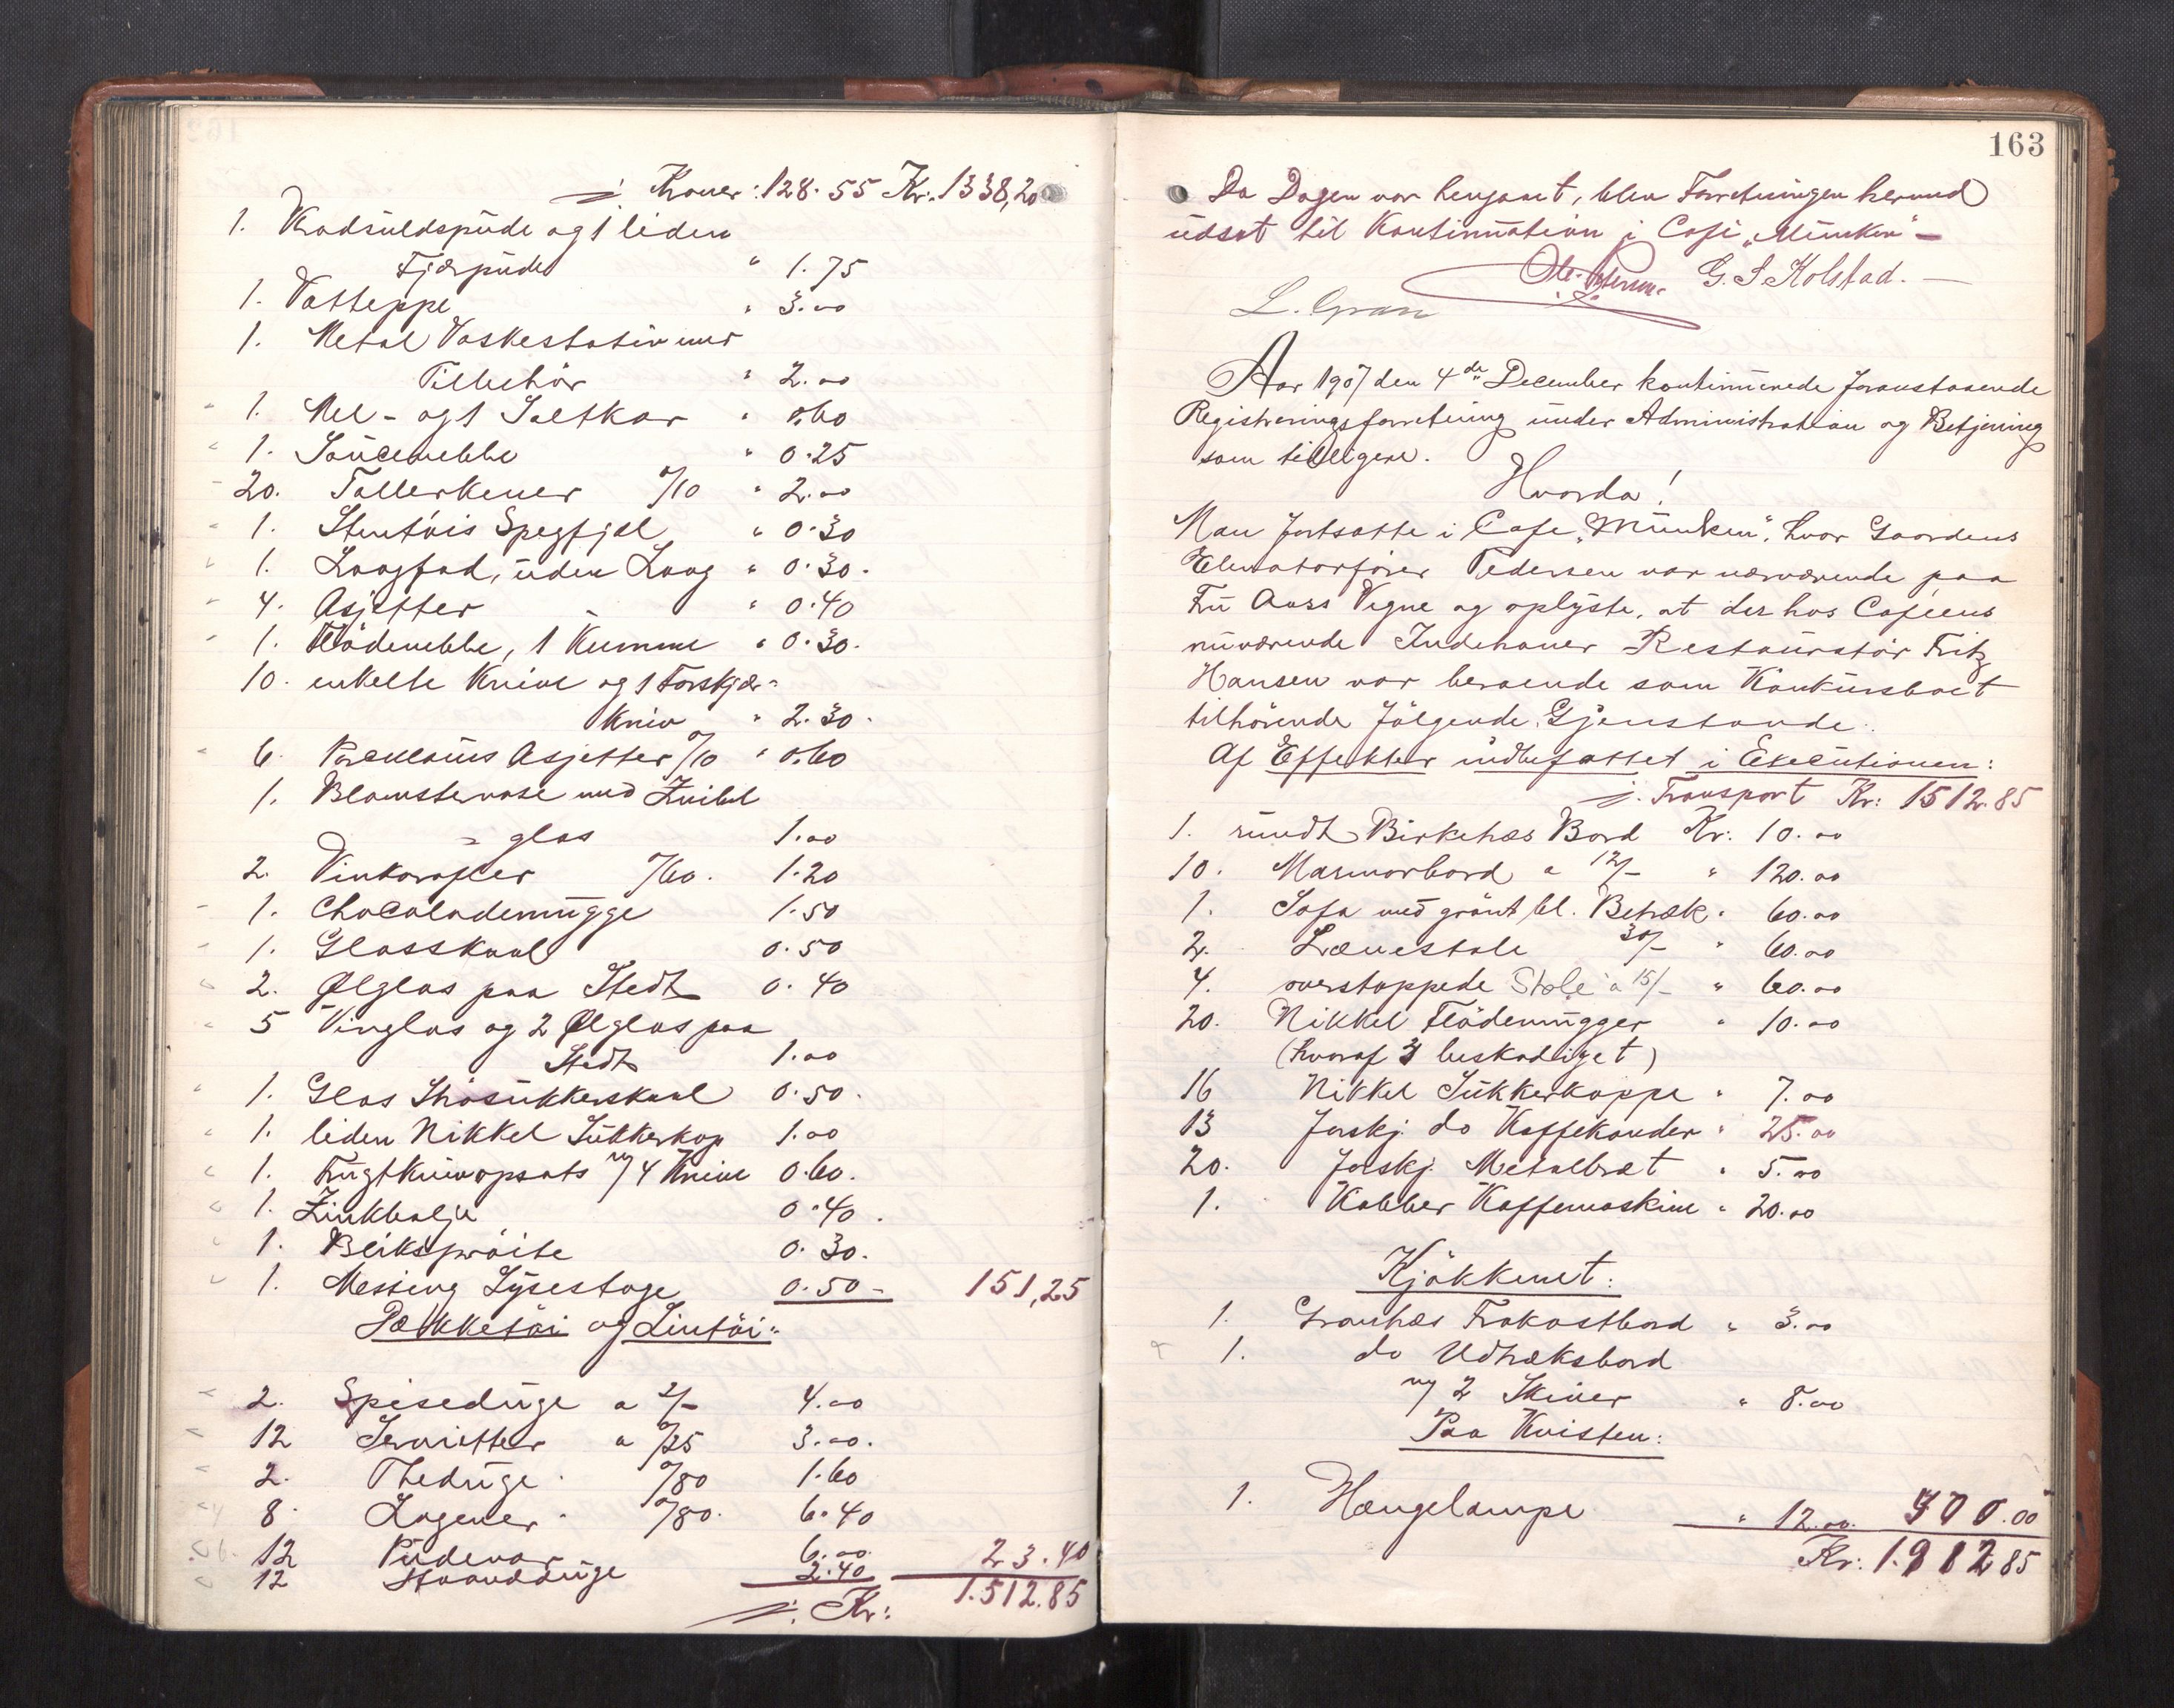 Kroner: 128.55 Kr. 1338,20
1. Krøduldspude og 1 liden
Fjærpude " 1.75
1. Vatteppe " 3.00
1. Metal Vaskestativ med
Tilbehör " 2.00
1. Mel- og 1 Saltkar " 0.60
1. Saucenebbe " 0.25
20. Tallerkener 0/10 " 2.00
1. Stentøis Spegfjel " 0.30
1. Laagfad, uden Laag " 0.30.
4. Asjetter " 0.40
1. Flödenebbe, 1 Kumme " 0.30.
10. enkelte Knive og 1 Forskjær-
kniv " 2.30.
6. Porcelains Asjetter 0/10 " 0.60
1. Blomstervase med Zvibel
= glas 1.00
2. Vinkarafler 0/60. 1.20
1. Chocolademugge 1.50
1. Glasskaal 0.50
2. Ølglas paa Stedt 0.40
5 Vinglas og 2 Ølglas paa
Stedt 1.00
1. Glas Strösukkerskaal 0.50.
1. liden Nikkel Sukkerkop 1.00
1. Frugtknivopsats m/ 4 Knive 0.60.
1. Zinkbalje 0.40.
1. Bliksprøite 0.30.
1. Messing Lysestage 0.50 - 151,25
Dækketöi og Lintöi:
2. Spiseduge a 2/- 4.00
12 Servietter a 0/25 3.00.
2. Theduge 0/80 1.60
8. Lagener 0/80. 6.40
12 Pudevar 6.00.
12 Haandduge 2.40 23.40
Kr: 1.512.85
163
Da Dagen var hengaaet, blev Forretningen herved
udsat til Kontinuation i Café "Munken" -
Ole Petersen G. S. Kolstad. -
L. Gran
Aar 1907 den 4de December kontinuerede foranstaaende
Registreringsforretning under Administration og Betjening
som tidligere.
Hvorda!
Man fortsatte i Cafe "Munken", hvor Gaardens
Elevatorfører Pedersen var nærværende paa
Fru Aars Vegne og oplyste, at der hos Caféens
nuværende Indehaver Restauratør Fritz
Hansen var beroende som Konkursboet
tilhörende fölgende Gjenstande.
Af Effekter indbefattet i Executionen:
Transport Kr: 1512.85
1. rundt Birketræs Bord Kr. 10.00
10. Marmorbord a 12/- " 120.00
1. Sofa med grönt bl. Betræk " 60.00
2. Lænestole 30/- " 60.00
4. overstoppede Stole a 15/- " 60.00
20. Nikkel Flödemugger " 10.00
(hvoraf 3 beskadiget)
16 Nikkel Sukkerkoppe " 7.00
13 forskj. do Kaffekander " 25.00
20. forskj. Metalbræt " 5.00
1. Kobber Kaffemaskine " 20.00
Kjökkenet:
1. Grantræs Frokostbord " 3.00
1. do Udtræksbord
m/ 2 Skiver " 8.00
Paa Kvisten:
1. Hængelampe " 12.00. 400.00
Kr: 1.912 85